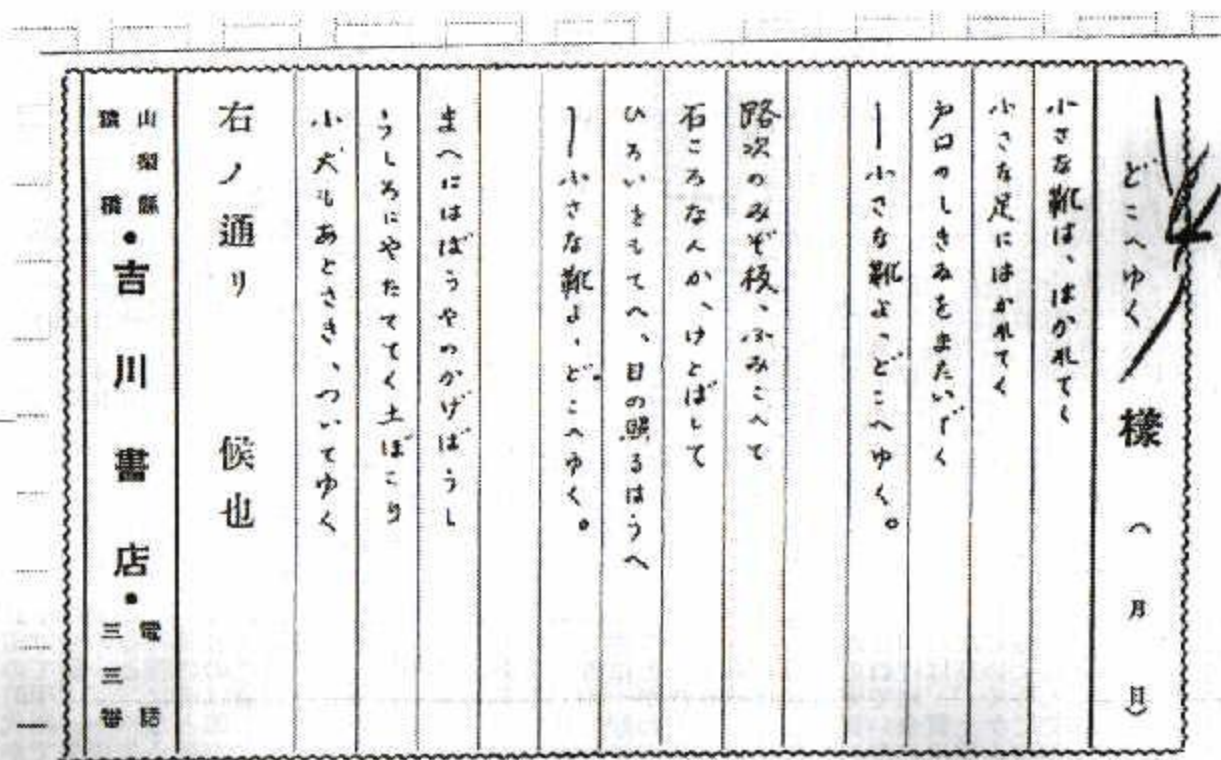 どこへゆく 様 (月 日)
小さな靴は、はかれてく
小さな足にはかれてく
戸口のしきゐをまたいでく
―小さな靴よ、どこへゆく。
路次のみぞ板、ふみこへて
石ころなんか、けとばして
ひろいをもてへ、日の照るはうへ
―小さな靴よ、どこへゆく。
まへにはばうやのかげばうし
うしろにやたててく土ぼこり
小犬もあとさき、ついてゆく
右ノ通リ 候也
山梨縣 猿橋・吉川書店・電話 三三番